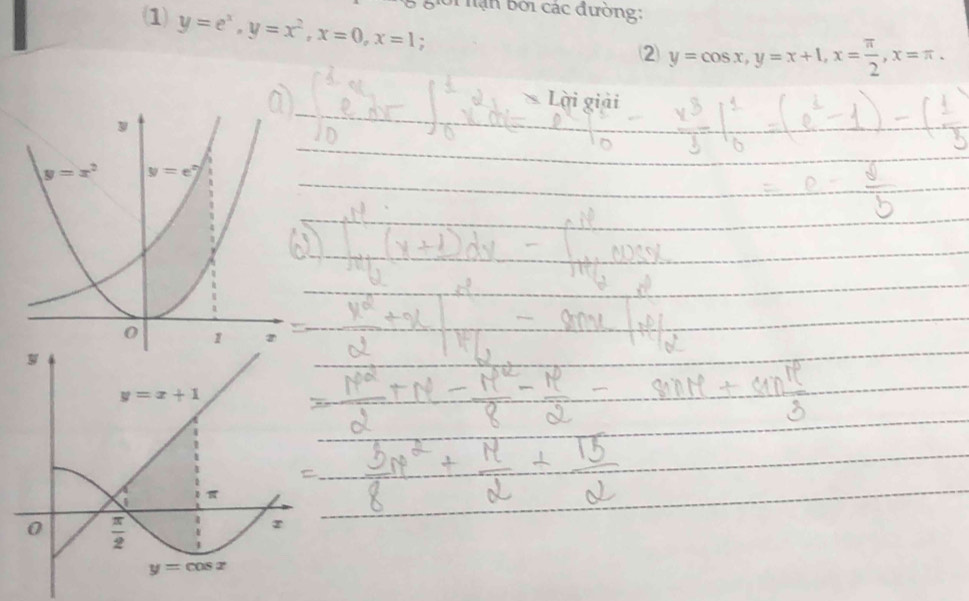 giới hạn bởi các đường:
(1) y = eˣ, y = x², x = 0, x = 1;
(2) y = cos x, y = x + 1, x = π/2, x = π.
Lời giải
a) ∫₀¹ eˣ dx - ∫₀¹ x² dx = eˣ |₀¹ - x³/3 |₀¹ = (e¹ - 1) - (1/3
= e -
y
y = x²
y = eˣ
O
1
x
b) ∫_{π/2}^{π} (x+1) dx - ∫_{π/2}^{π} cosx
= x²/2 + x |_{π/2}^{π} - sinx |_{π/2}^{π}
= π²/2 + π - π²/8 - π/2 - sinπ + sin π/3
= 3π²/8 + π/2 + √3/2
y
y = x + 1
π
O
π/2
x
y = cos x